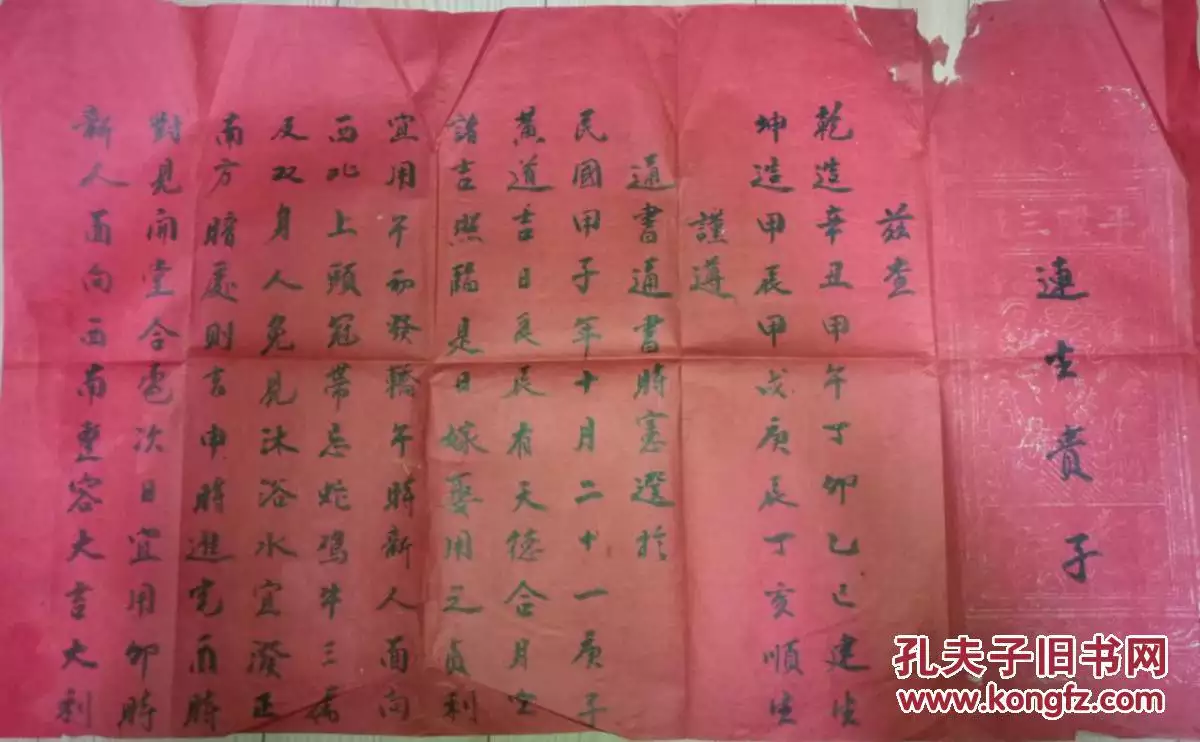 連生貴子
茲查
乾造辛丑甲午丁卯乙巳建生
坤造甲辰甲戌庚辰丁亥順生
謹遵
通書通書時憲選於
民國甲子年十月二十一庚子
黃道吉日良辰有天德合月空
諸吉照臨是日嫁娶用之貞利
宜用午初發轎午時新人面向
西北上頭冠帶忌蛇鸡牛三屬
及双身人免見沐浴水宜潑正
南方暗處則吉申時進宅酉時
對見開堂合卺次日宜用卯時
新人面向西南整容大吉大利
孔夫子旧书网
www.kongfz.com